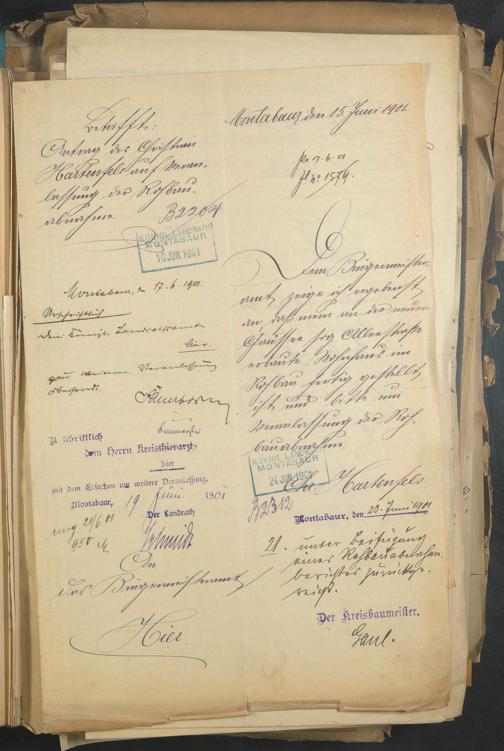 Betrifft:
Antrag des Christian
Hartenfels auf Veran-
lassung der Rohbau-
abnahme
B 2204
KÖNIGL. LANDRATH
MONTABAUR
18 JUN 1901
Montabaur, d. 17.6.1901.
Urschriftlich
dem Königl. Landrathsamt
hier
zur weiteren Veranlassung
Urschriftlich
dem Herrn Kreisthierarzt
baumeister
hier
mit dem Ersuchen um weitere Veranlassung.
Montabaur, 19 Juni 1901
Der Landrath
Schmidt
An
das Bürgermeisteramt
Hier.
Montabaur, den 15 Juni 1901.
Pr. 17.6.01
J. No. 1574.
Dem Bürgermeister-
amt zeige ich ergebenst
an, daß mein an der neuen
Chaussee sog. Alleestraße
erbaute Wohnhaus im
Rohbau fertig gestellt
ist und bitte um
Veranlassung der Roh-
bauabnahme.
Chr. Hartenfels
KÖNIGL. LANDRATH
MONTABAUR
24 JUN 1901
B 2312
Montabaur, den 23. Juni 1901
unter Beifügung
eines Rohbauabnahme-
berichtes zurückge-
reicht.
Der Kreisbaumeister.
Gaul.